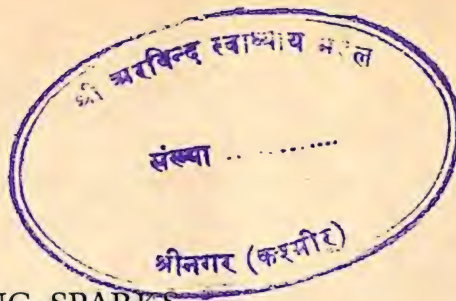 श्री अरविन्द स्वाध्याय मंडल
संख्या .. ..........
श्रीनगर (कश्मीर)
SPARKS